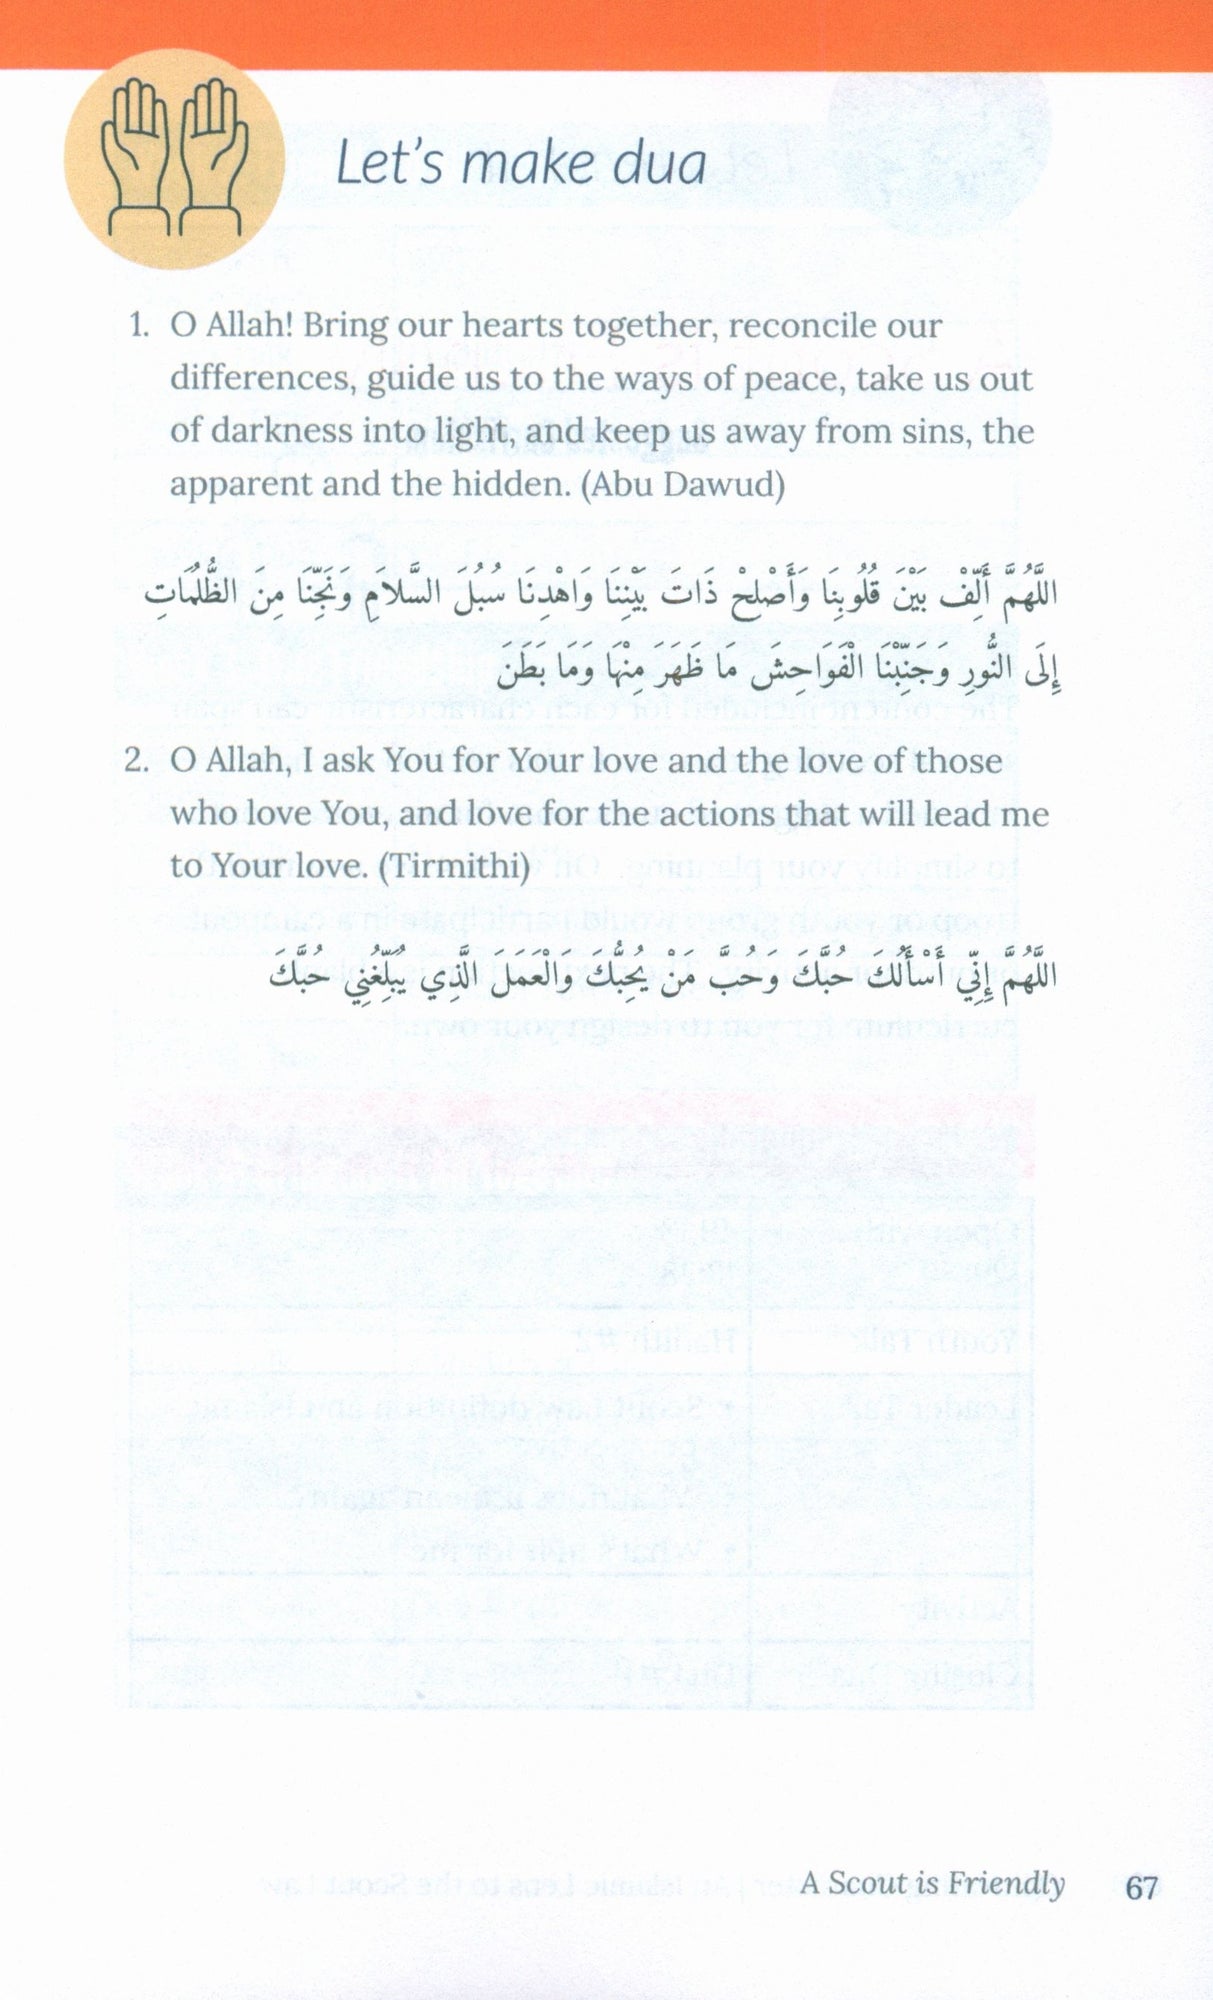 Let's make dua
1. O Allah! Bring our hearts together, reconcile our
differences, guide us to the ways of peace, take us out
of darkness into light, and keep us away from sins, the
apparent and the hidden. (Abu Dawud)
اللَّهُمَّ أَلِّفْ بَيْنَ قُلُوبِنَا وَأَصْلِحْ ذَاتَ بَيْنِنَا وَاهْدِنَا سُبُلَ السَّلاَمِ وَنَجِّنَا مِنَ الظُّلُمَاتِ
إِلَى النُّورِ وَجَنِّبْنَا الْفَوَاحِشَ مَا ظَهَرَ مِنْهَا وَمَا بَطَنَ
2. O Allah, I ask You for Your love and the love of those
who love You, and love for the actions that will lead me
to Your love. (Tirmithi)
اللَّهُمَّ إِنِّي أَسْأَلُكَ حُبَّكَ وَحُبَّ مَنْ يُحِبُّكَ وَالْعَمَلَ الَّذِي يُبَلِّغُنِي حُبَّكَ
A Scout is Friendly 67